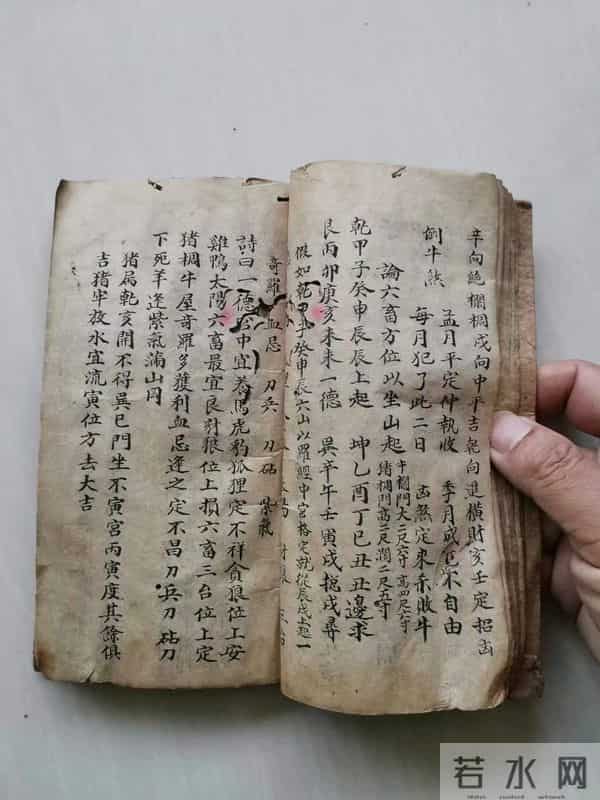 辛向絕欄棚戌向中平吉乾向進橫財亥壬定招凶
倒牛煞
孟月平定仲執收 季月成危不自由
每月犯了此二日 凶煞定來乖敗牛
論六畜方位以坐山起 牛欄門大二尺六寸高四尺六寸
猪棚門高二尺濶二尺五寸
乾甲子癸申辰辰上起 坤乙酉丁巳丑丑邊求
艮丙卯庚亥未未一德 巽辛午壬寅戌挩戌尋
假如乾甲子癸申辰六山以羅經中宮格定就從辰戌上起一
奇羅 血忌 刀兵 刀砧 紫氣
詩曰一德 中宜養馬虎豹狐狸定不祥貪狼位上安
雞鴨太陽六畜最宜良財狼位上損六畜三台位上定
猪棚牛屋奇羅多獲利血忌逢之定不昌刀兵刀砧刀
下死羊逢紫氣滿山岡
猪扄乾亥開不得巽巳門坐不寅宮丙寅度其餘俱
吉猪牢放水宜流寅位方去大吉
若水网